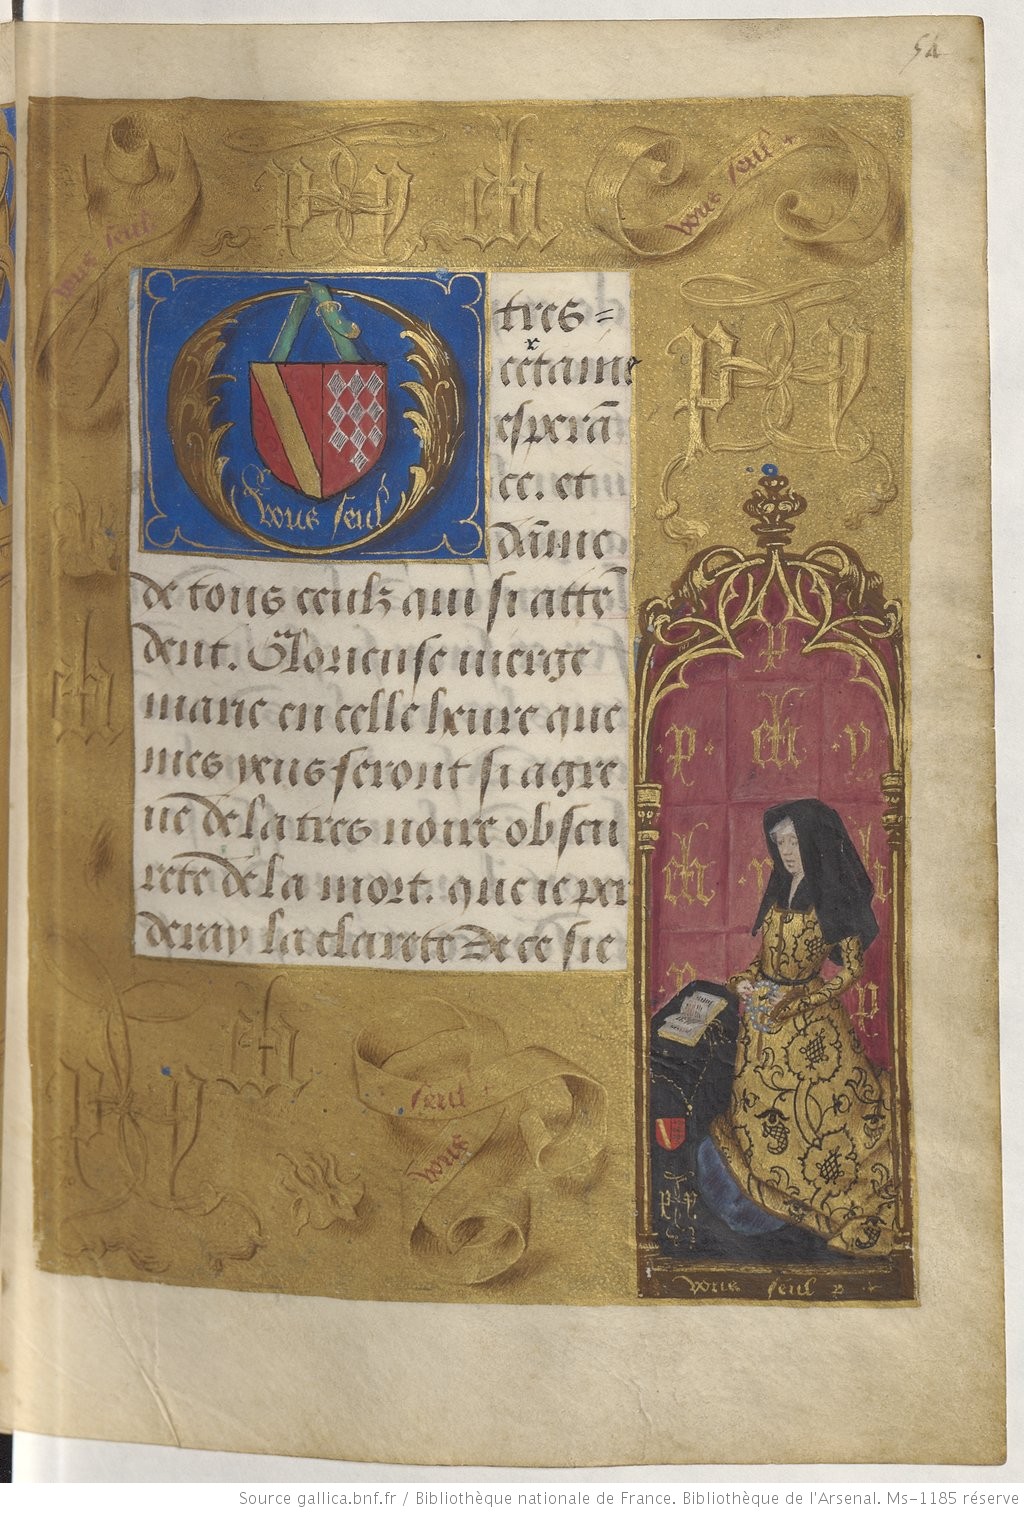 54
vous seul
p y ch
vous seul +
p y
O tres=
certaine
esperā
ce. et
dāme
de tous ceulx qui si attē
dent. Glorieuse vierge
marie en celle heure que
mes yeus seront si agre
ue de la tres noire obscu
rete de la mort. que ie per
deray la clarete de ce sie
vous seul
ch
p
· p · ch · y
ch
p y
ch
seul +
vous
p
p
p y
vous seul
Source gallica.bnf.fr / Bibliothèque nationale de France. Bibliothèque de l'Arsenal. Ms-1185 réserve